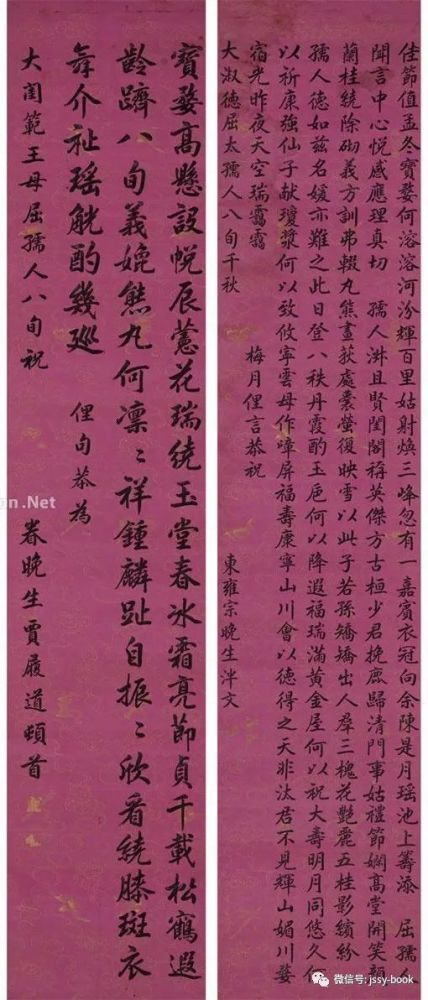 佳節值孟冬寶婺何溶溶河汾輝百里姑射煥三峰忽有一嘉賓衣冠向余陳是月瑤池上籌添 屈孺人
聞言中心悅感應理真切 孺人淑且賢閨閣稱英傑方古桓少君挽鹿歸清門事姑禮節嫻高堂開笑顏
蘭桂繞除砌義方訓弗輟九熊畫荻處囊螢復映雪以此子若孫矯矯出人羣三槐花艷麗五桂影繽紛
孺人德如茲名媛亦難之此日登八秩丹霞酌玉卮何以降遐福瑞滿黃金屋何以祝大壽明月同悠久何
以祈康強仙子献瓊漿何以致攸寧雲母作嶂屏福壽康寧山川會以德得之天非汰君不見輝山媚川婺
宿光昨夜天空瑞靄靄 梅月俚言恭祝
大淑德屈太孺人八旬千秋 東雍宗晚生泮文
寶婺高懸設帨辰蘐花瑞繞玉堂春冰霜亮節貞千載松鶴遐
齡躋八旬義媲熊丸何凛〻祥鍾麟趾自振〻欣看繞膝斑衣
舞介祉瑤觥酌幾廵 俚句恭為
大閨範王母屈孺人八旬祝 眷晚生賈履道頓首
on.Net
微信号: jssy-book